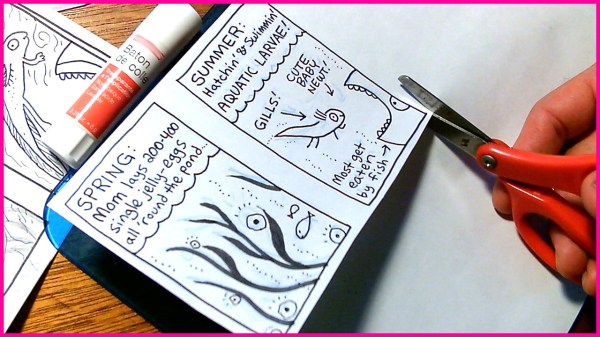 Bâton
de colle
SUMMER:
Hatchin' & Swimmin'
AQUATIC LARVAE!
CUTE
BABY
NEWT!
GILLS!
Most get
eaten
by fish
SPRING:
Mom lays 200-400
single jelly-eggs
all 'round the pond...